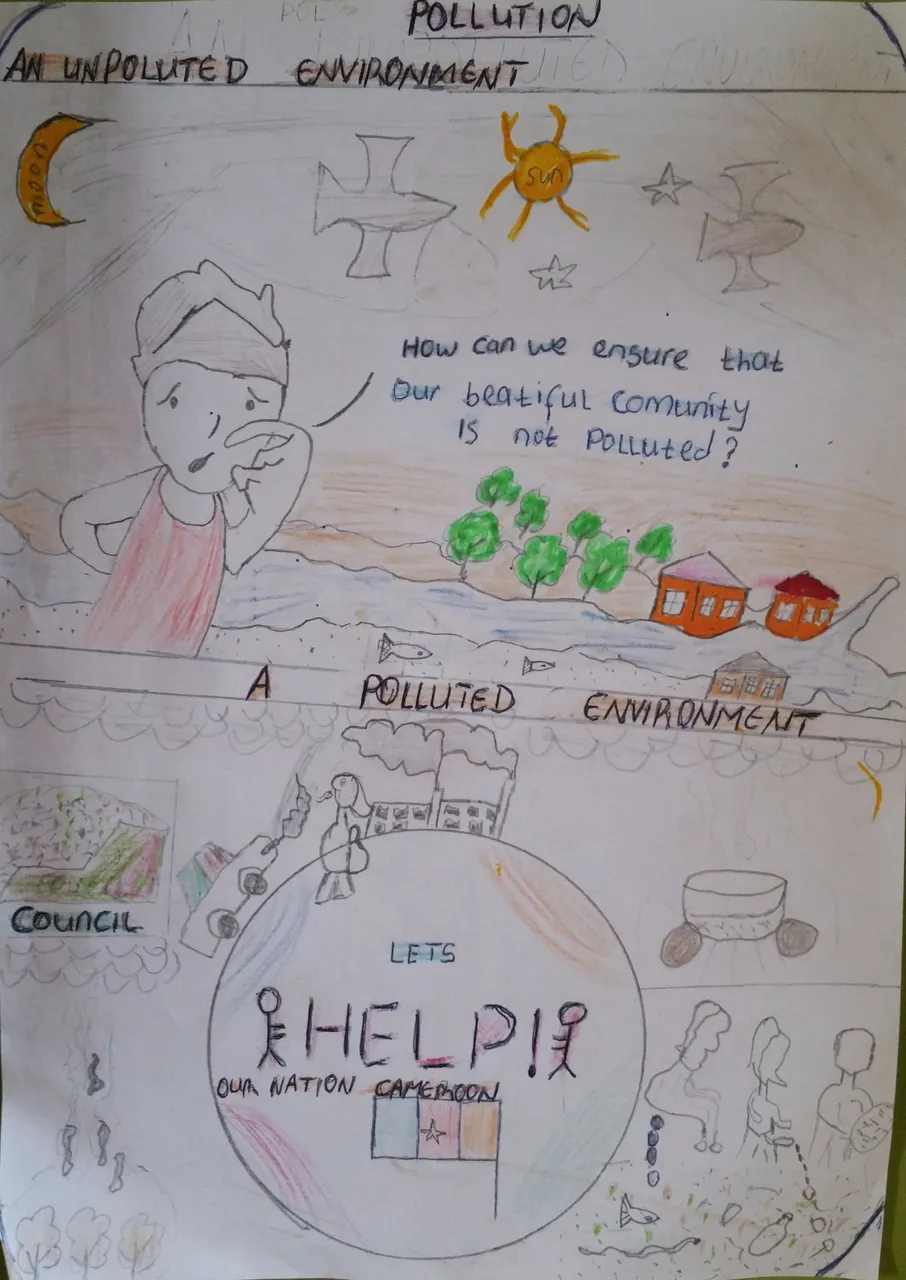 POLLUTION
AN UNPOLUTED ENVIRONMENT
MOON
SUN
HOW can we ensure that
Our beatiful comunity
is not Polluted?
A POLLUTED ENVIRONMENT
COUNCIL
LETS
HELP!
OUR NATION CAMEROON